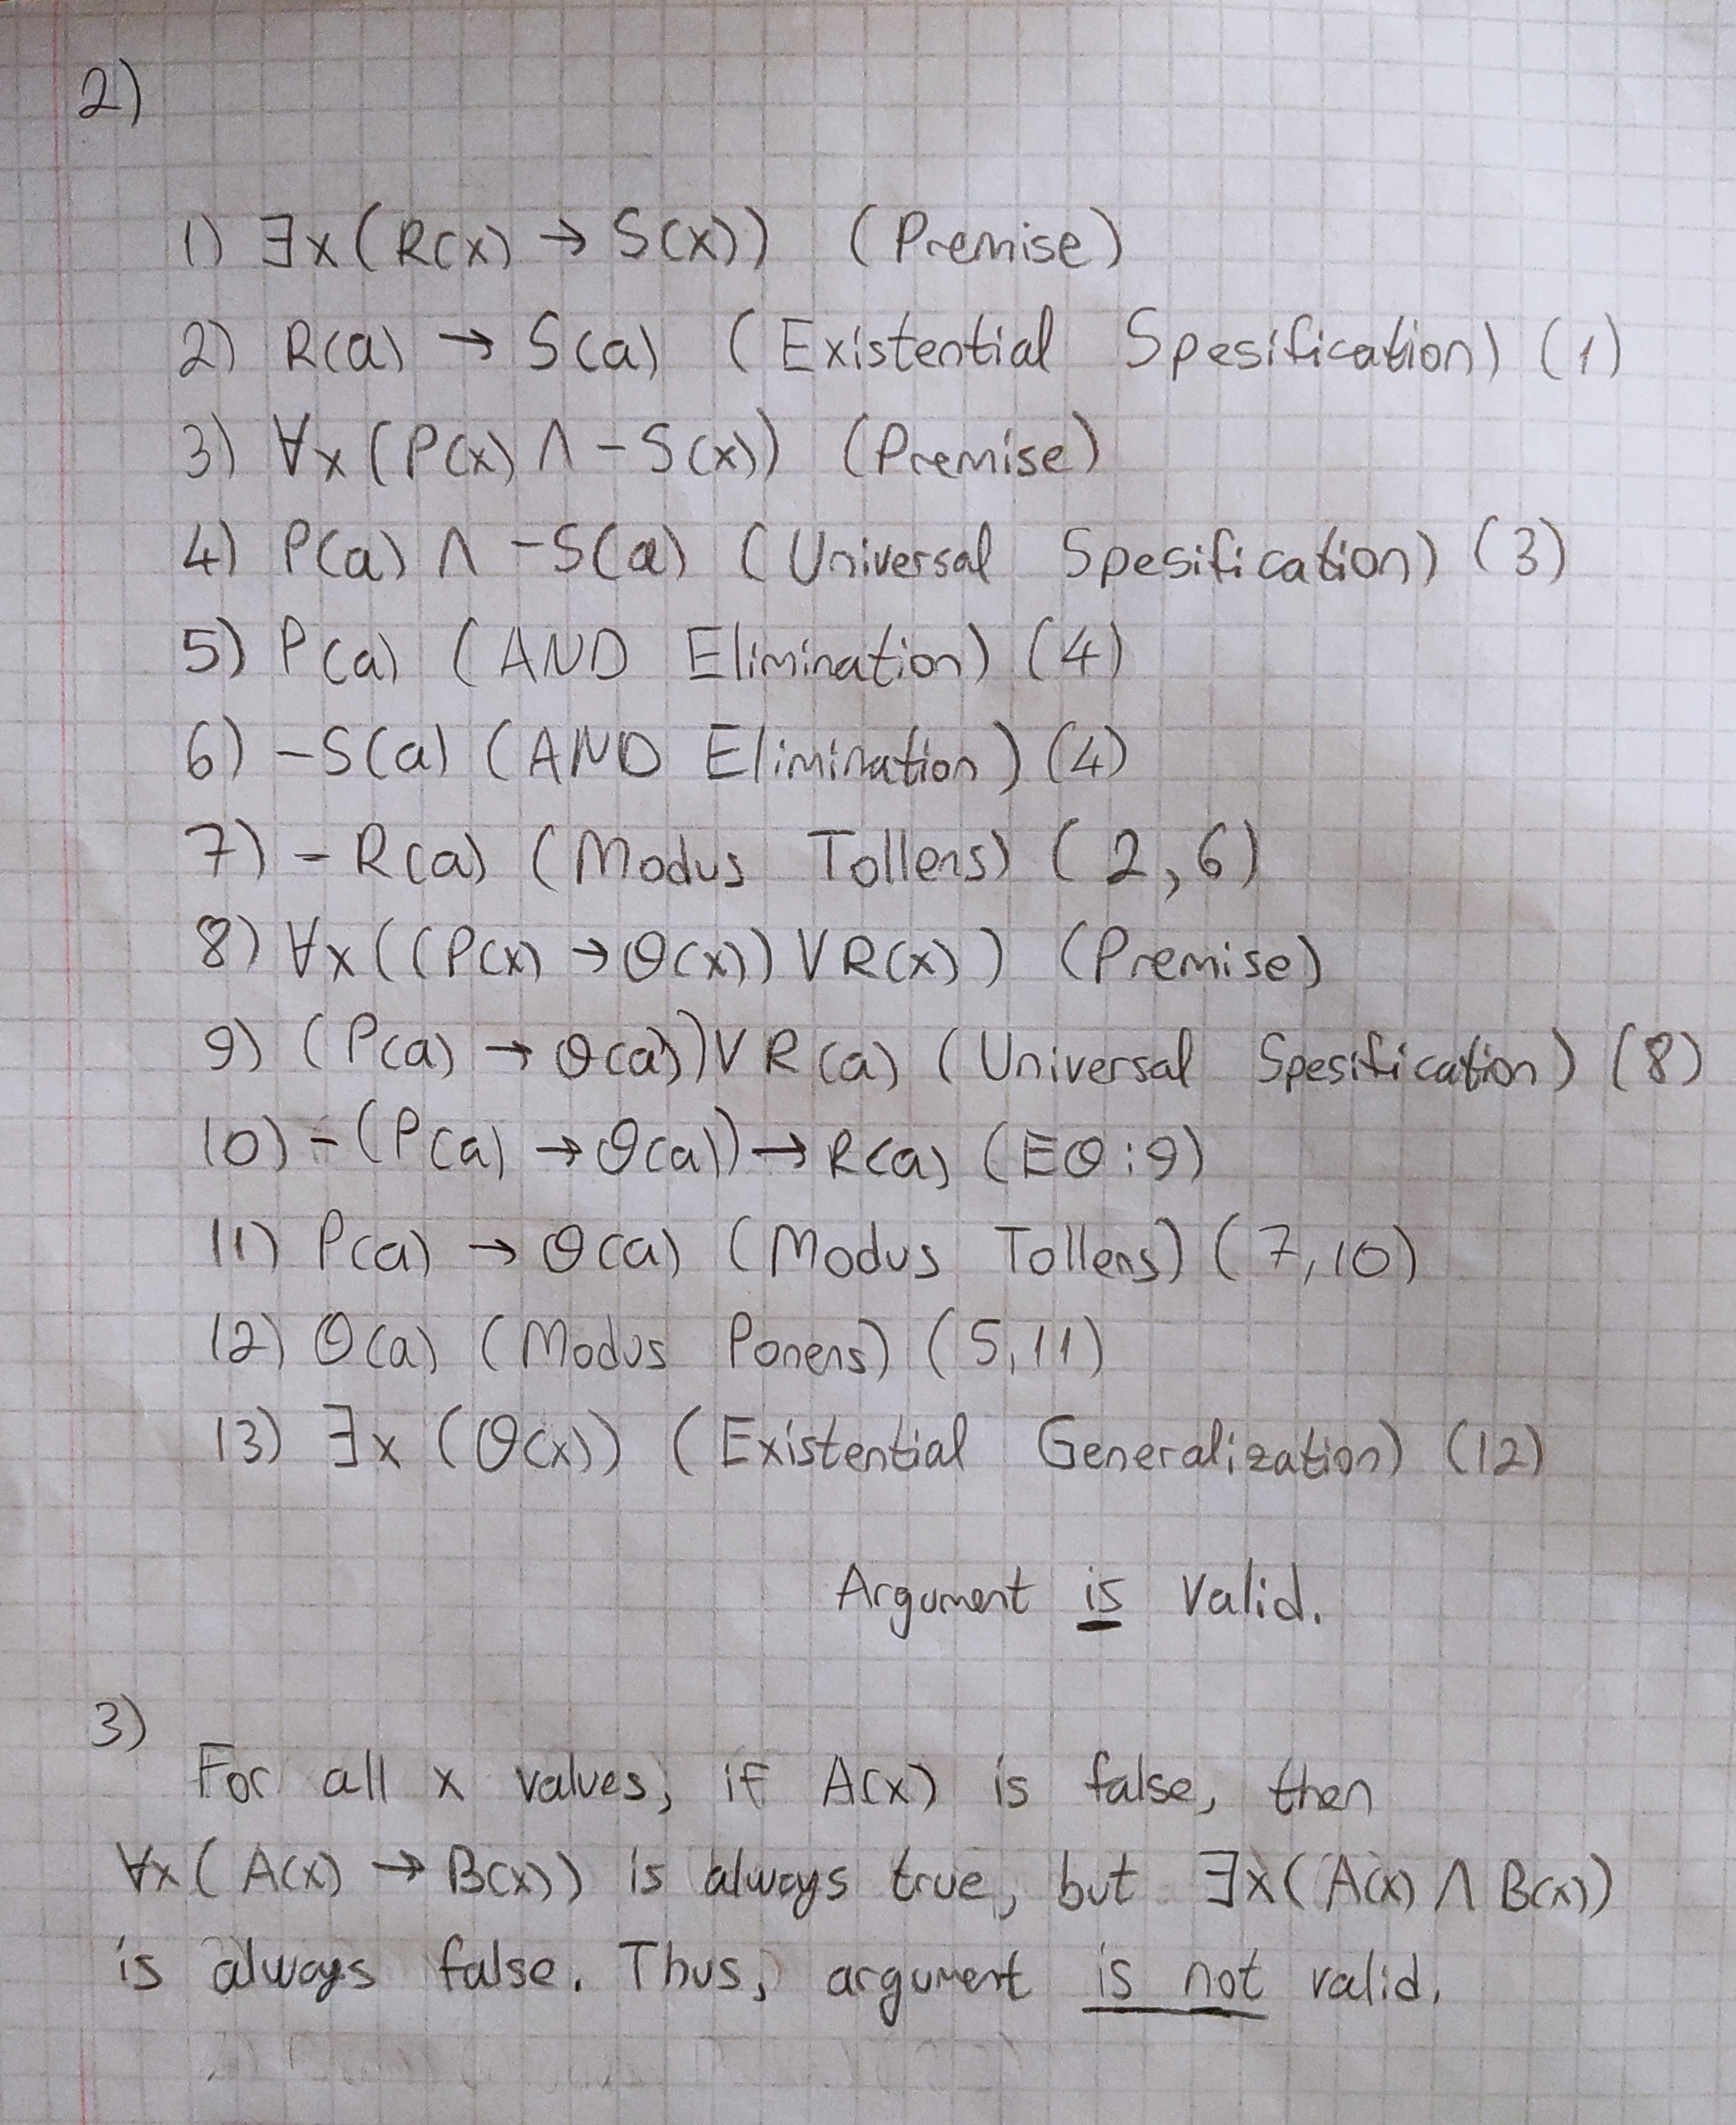 2)
1) ∃x(R(x) → S(x)) (Premise)
2) R(a) → S(a) (Existential Spesification) (1)
3) ∀x(P(x) ∧ -S(x)) (Premise)
4) P(a) ∧ -S(a) (Universal Spesification) (3)
5) P(a) (AND Elimination) (4)
6) -S(a) (AND Elimination) (4)
7) -R(a) (Modus Tollens) (2,6)
8) ∀x((P(x) → Q(x)) ∨ R(x)) (Premise)
9) (P(a) → Q(a)) ∨ R(a) (Universal Spesification) (8)
10) -(P(a) → Q(a)) → R(a) (EQ:9)
11) P(a) → Q(a) (Modus Tollens) (7,10)
12) Q(a) (Modus Ponens) (5,11)
13) ∃x(Q(x)) (Existential Generalization) (12)
Argument is valid.
3)
For all x values, if A(x) is false, then
∀x(A(x) → B(x)) is always true, but ∃x(A(x) ∧ B(x))
is always false. Thus, argument is not valid.